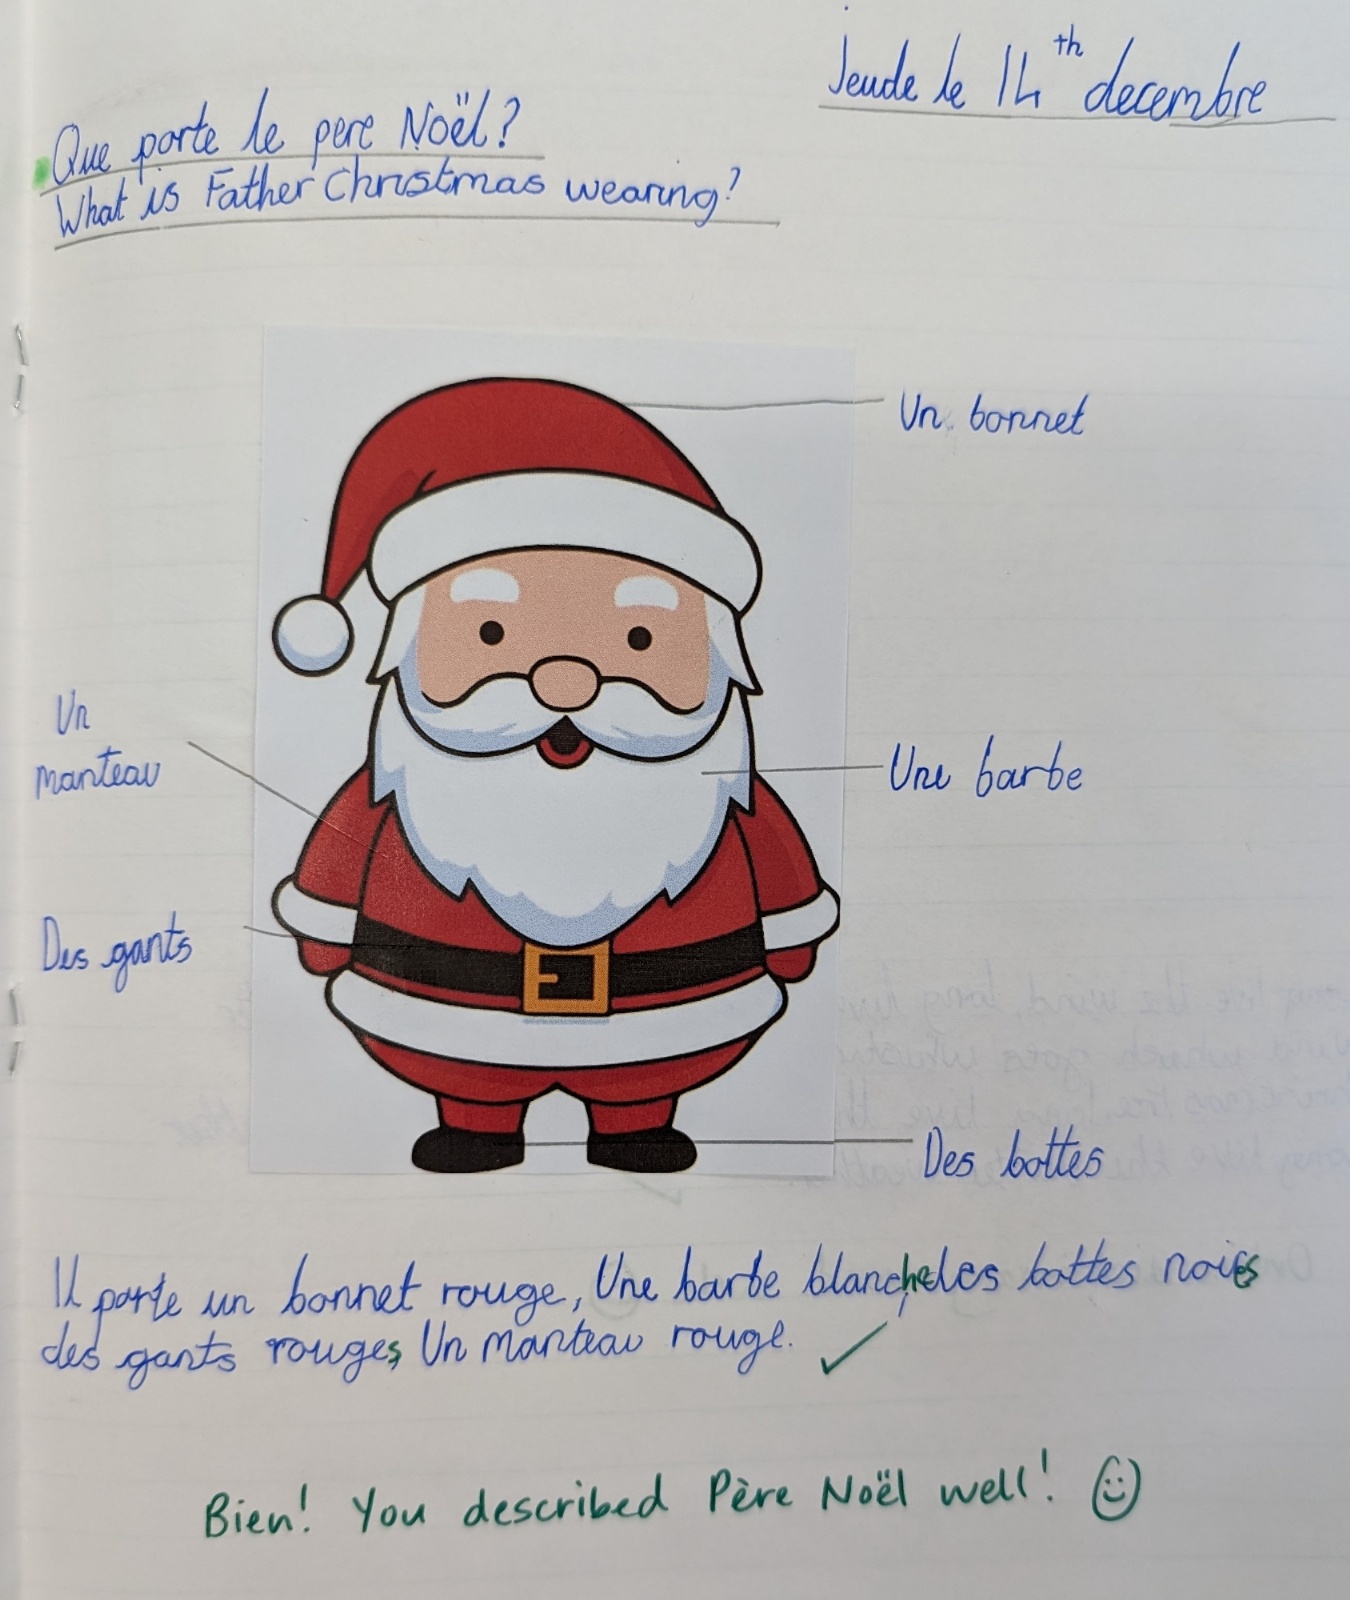 Jeude le 14th decembre
Que porte le pere Noël?
What is Father Christmas wearing?
Un bonnet
Un
manteau
Une barbe
Des gants
Des bottes
Il porte un bonnet rouge, Une barbe blanche, des bottes noires
des gants rouges, Un manteau rouge.
Bien! You described Père Noël well!